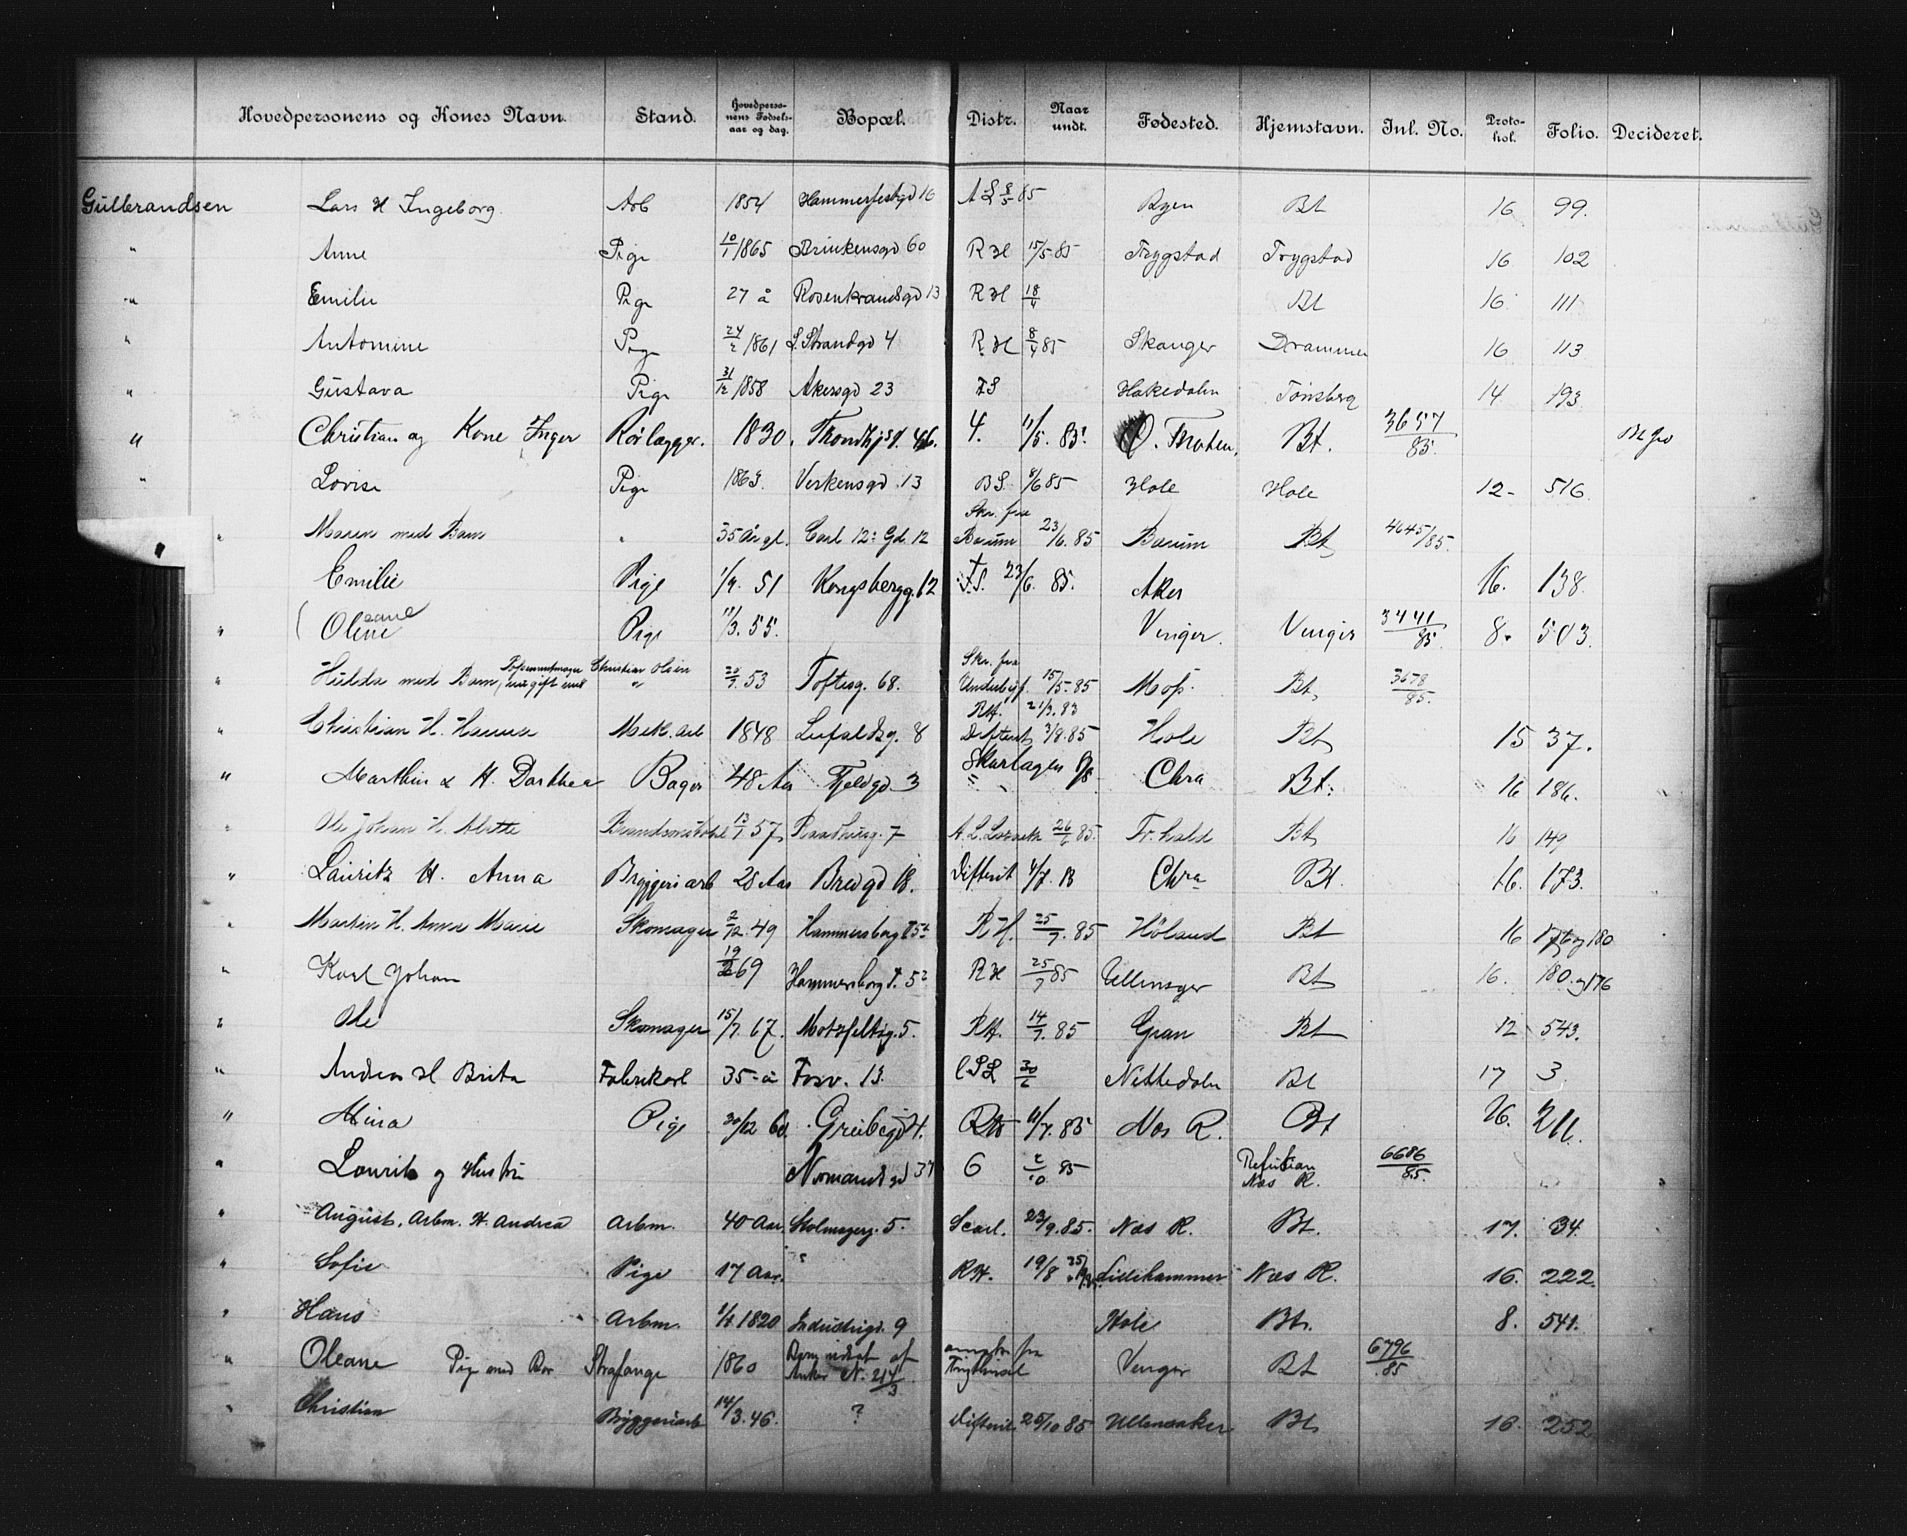 Hovedpersonens og Kones Navn. Stand. Hovedpersonens Fødselsaar og dag. Bopæl. Distr. Naar undt. Fødested. Hjemstavn. Jnl. No. Protokol. Folio. Decideret.
Gulbrandsen Lars H Ingeborg Arb 1854 Hammerfestgd 16 85 Byen Bt 16 99.
" Anne Pige 10/1 1865 Brinkensgd 60 R H 15/5 85 Trygstad Trygstad 16 102
" Emilie Pige 27 å Rosenkrandsgd 13 R H 18/4 Bt 16 111
" Antomine Pige 24/2 1861 L. Strandgd 4 R H 8/4 85 Skauger Drammen 16 113
" Gustava Pige 31/12 1858 Akersgd 23 Hakedalen Tønsberg 14 193
" Christian og Kone Inger Rørlægger. 1830. Trondhjsv. 46. 4. 11/5. 85. Ø. Thoten, Bt. 3657/85.
" Lovise Pige 1863. Verkensgd 13 B S 8/6 85 Hole Hole 12- 516
" Maren med Barn " 35 År gl. Carl 12: Gd. 12 Skr. fra Bærum 23/6. 85 Bærum Bt 4645/85.
Emilie Pige 1/9. 51 Kongsbergg. 12 23/6. 85. Aker 16. 138.
" ( Oline eane Pige 11/3. 55. Venger. Venger 3441/85 8. 503.
" Hulda med Barn, ugift med Christian Olsen " 53 Toftesg. 68. Skr. fra 15/5-85 Moss. Bt, 3678/85.
" Christian H. Hanna Mek. Arb 1848 8 RH. 21/3. 83 Difterit 3/8. 85 Hole Bt 15 37.
" Marthin & H. Dorthea Bager 48 Aar Fjeldgd 3 Skarlagen Chra Bt. 16 186.
" Ole Johan H. Alette 13/1 57 Raadhusg. 7 85. Fr.hald Bt 16 149
" Lauritz H. Anna Bryggeriarb 28 Aar Bredgd 18. Difterit Chra Bt. 16. 173.
" Marthin H. Anna Marie Skomager 2/12. 49 Hammersborg T. 5 R H. 25/7. 85 Høland Bt 16 176 og 180
" Karl Johan 19/2 69 Hammersborg T. 5 R H 25/7 85 Ullensager Bt 16. 180. og 176
" Ole Skomager 15/7. 67. Motzfeltsg. 5. R H. 14/7. 85 Gran Bt 12 543.
" Andreas H Brita Fabrikarb 35-å Fosv. 13. 30/6 Nittedalen Bt 17 3
" Mina Pige 30/12 60. Grübegd 4. 11/7. 85 Næs R. Bt 16. 211.
" Laurits og Hustru Normandsgd 37 6 2/10 85 Refusion Næs R. 6686/85.
" August, Arbm. H. Andrea Arbm. 40 Aar Skolmagerg. 5. Scarl. 23/9. 85. Næs R. Bt. 17. 34.
" Sofie Pige 17 Aar. RH. 19/8 Lillehammer Næs R. 16. 222.
" Hans Arbm. 1/4 1820 Industrigd. 9 Hole Bt. 8. 541.
" Oleane Pige med Bar Strafange 1860 Barn udsat af Anker N. 214/3 fra Venger Bt 6796/85
" Christian Bryggeriarb 14/3. 46. ? Difterit 25/10 85 Ullensaker Bt 16. 252.